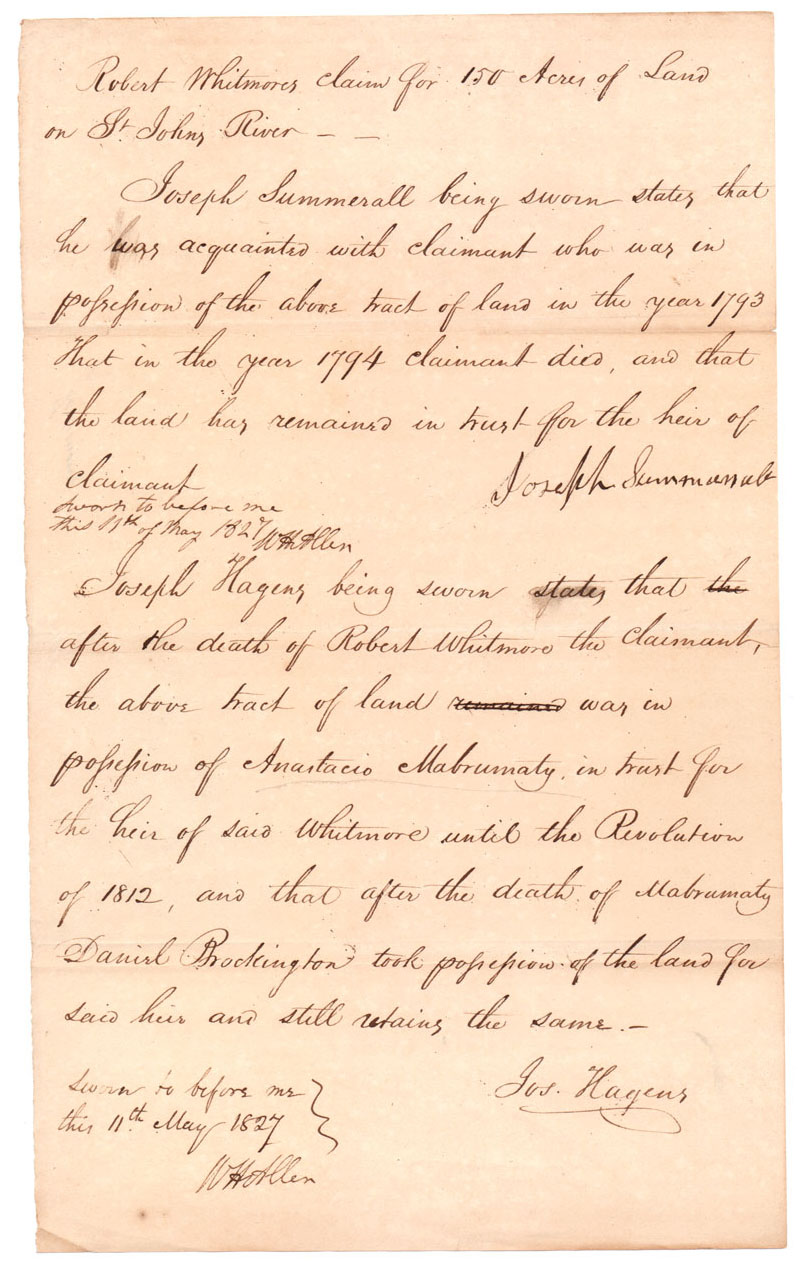 Robert Whitmores claim for 150 Acres of Land
on St. Johns River — —
Joseph Summerall being sworn states that
he was acquainted with claimant who was in
possession of the above tract of land in the year 1793
that in the year 1794 claimant died, and that
the land has remained in trust for the heir of
claimant
Joseph Summerall
sworn to before me
this 11th of May 1827
WH Allen
Joseph Hagens being sworn states that the
after the death of Robert Whitmore the Claimant,
the above tract of land remained was in
possession of Anastacio Mabrumaty, in trust for
the heir of said Whitmore until the Revolution
of 1812, and that after the death of Mabrumaty
Daniel Brockington took possession of the land for
said heir and still retains the same. —
Jos. Hagens
sworn to before me
this 11th May 1827
WH Allen